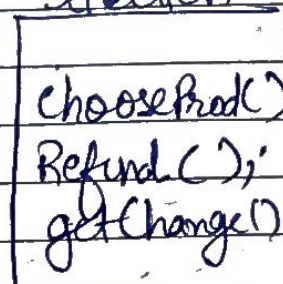 chooseProd()
Refund();
getChange()